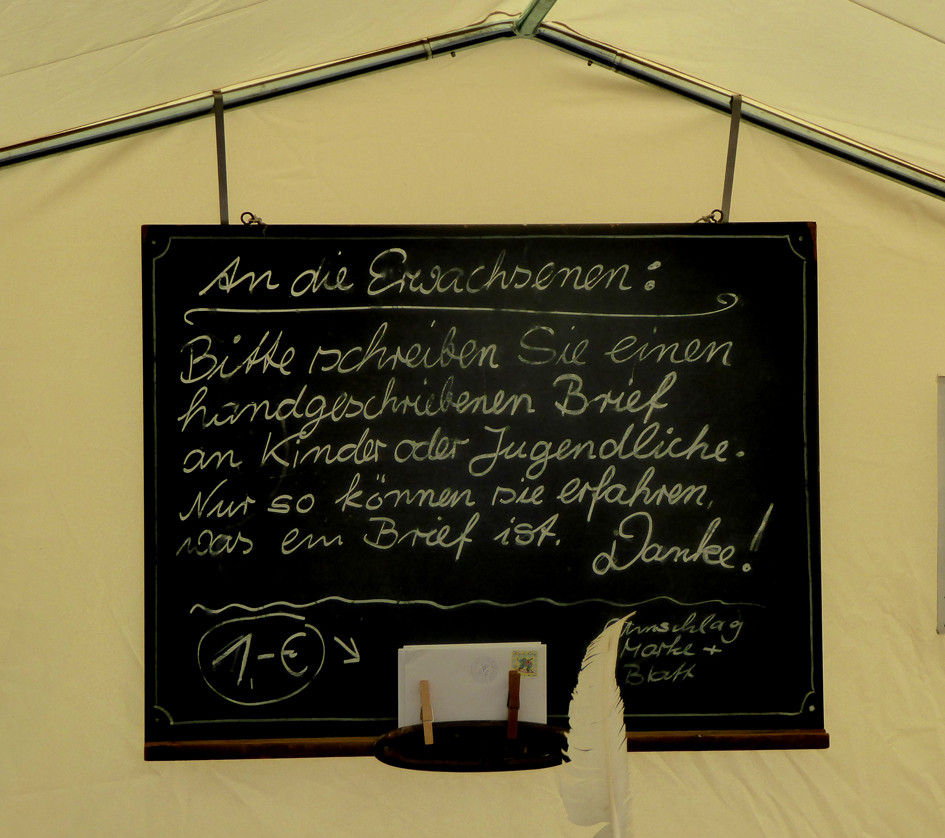 An die Erwachsenen:
Bitte schreiben Sie einen
handgeschriebenen Brief
an Kinder oder Jugendliche.
Nur so können sie erfahren,
was ein Brief ist. Danke!
1,-€
Umschlag
Marke +
Blatt